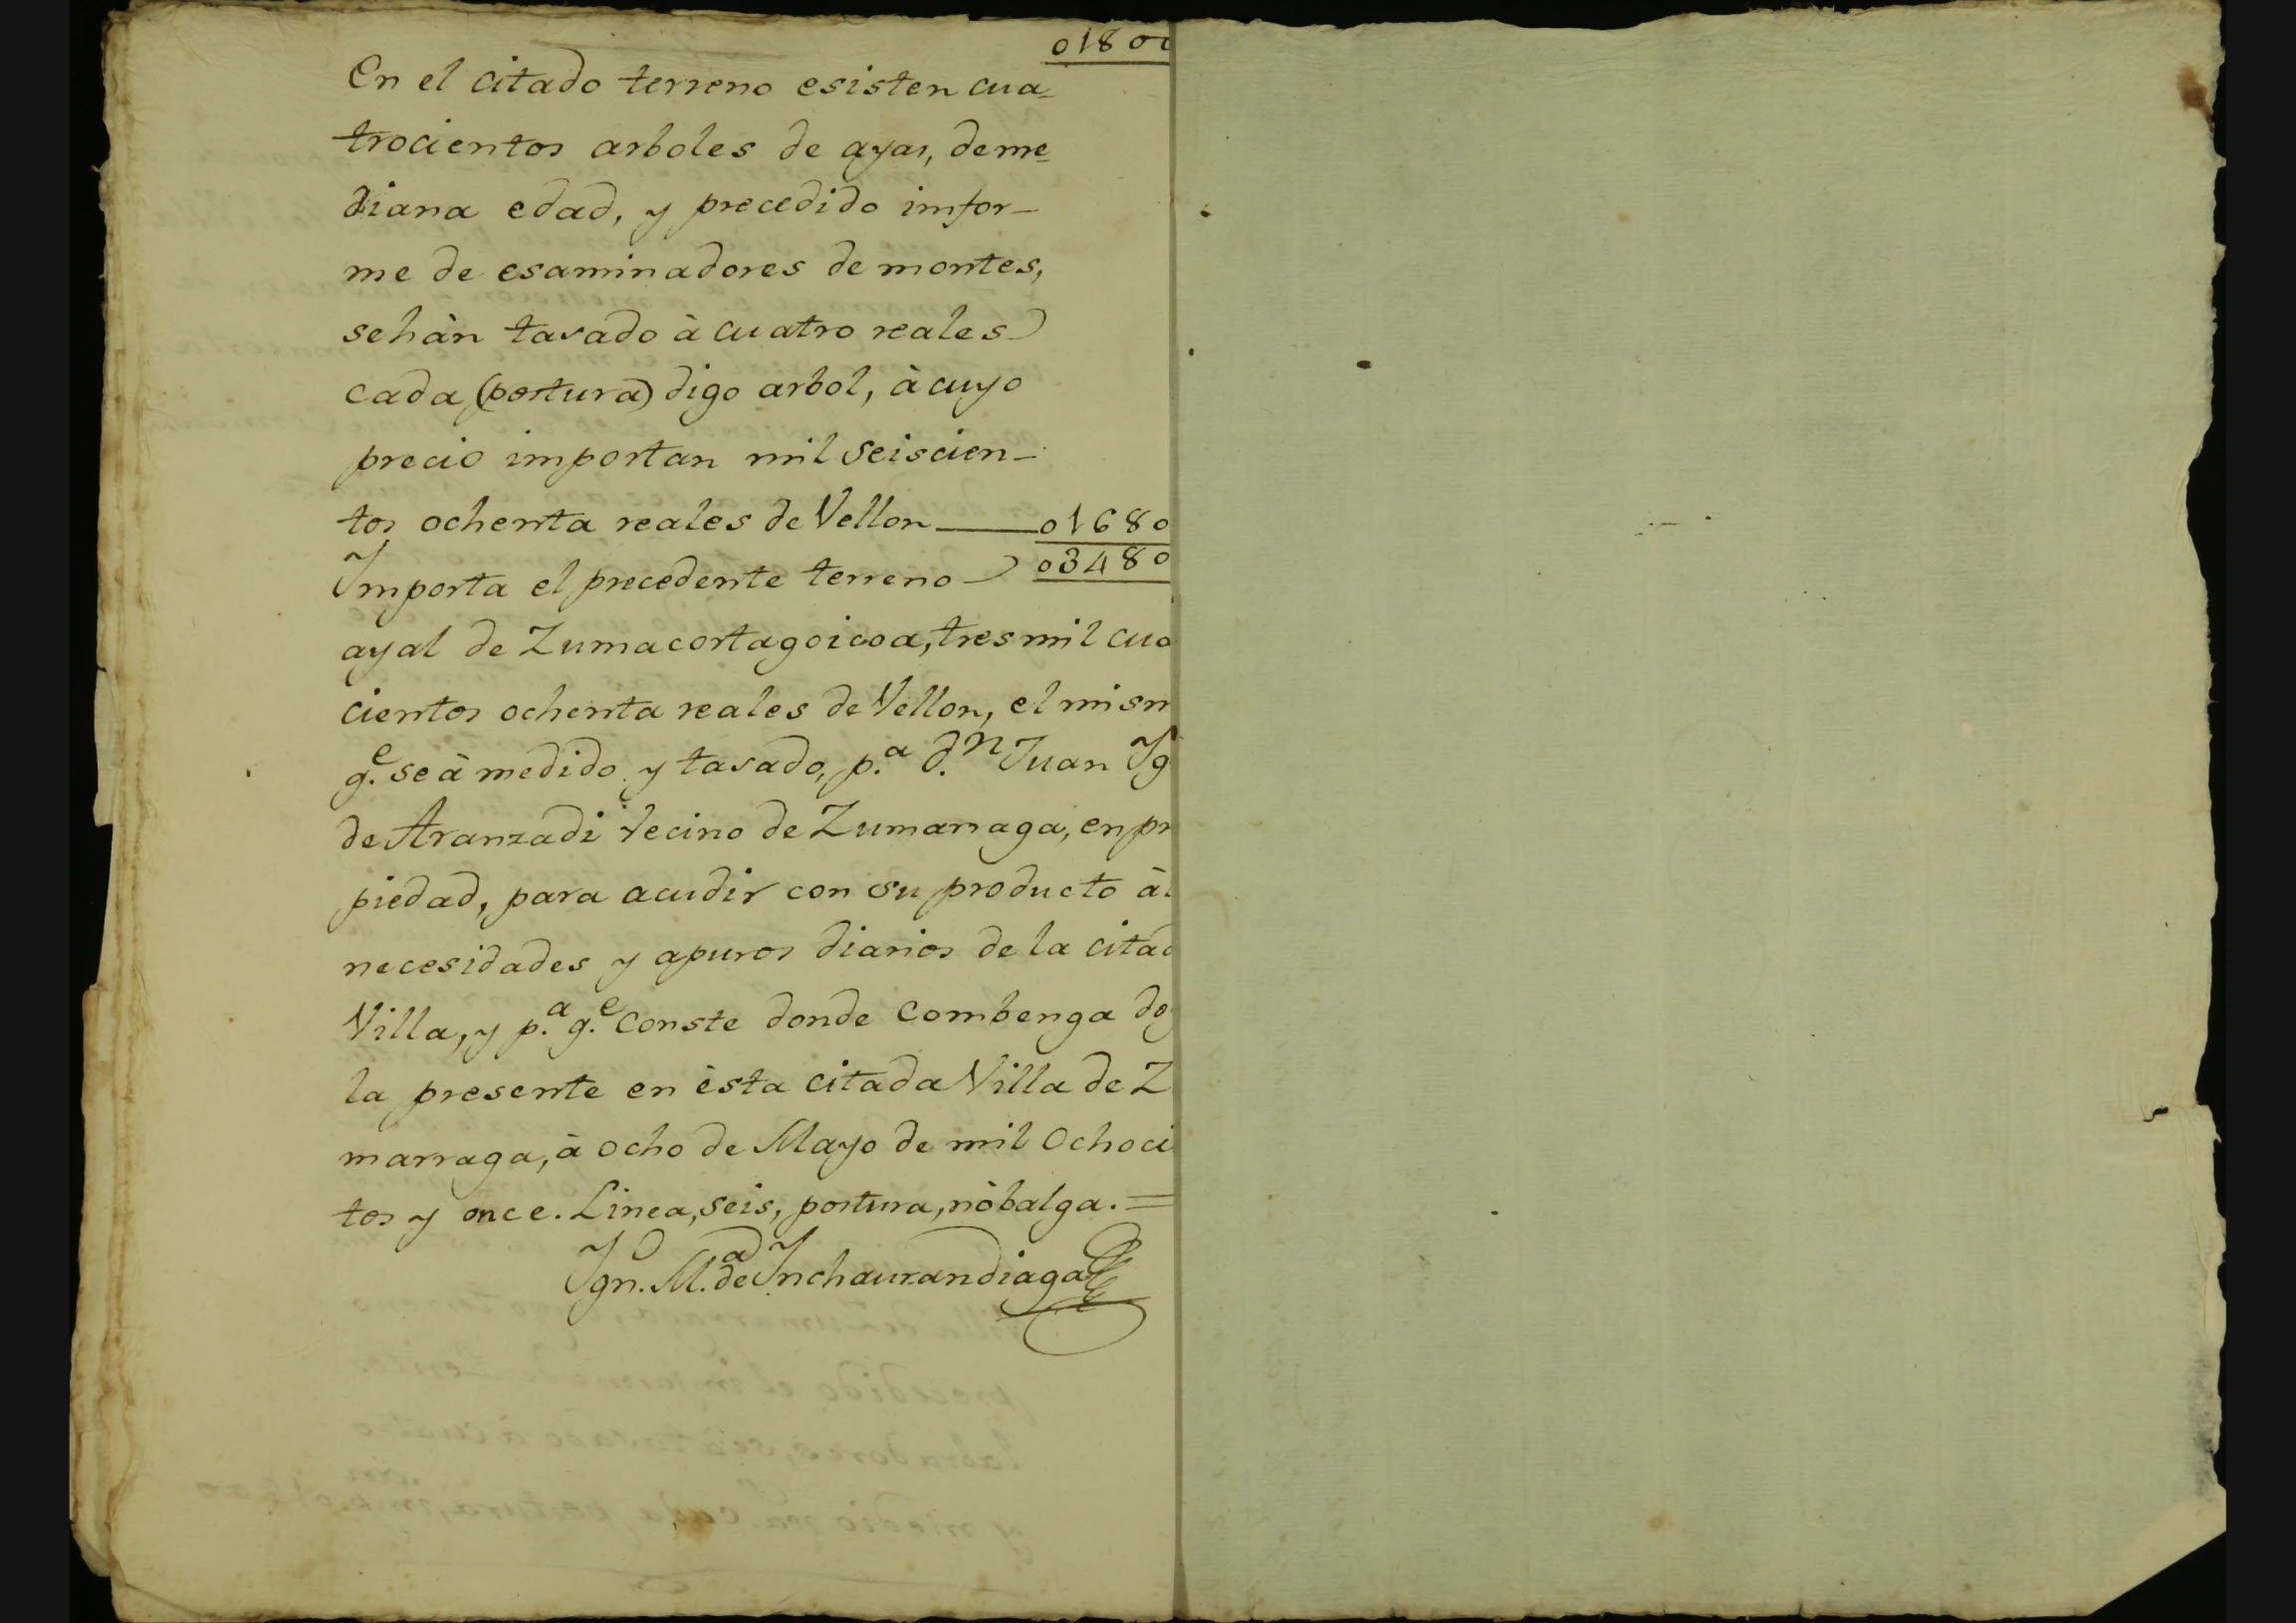 0180
En el citado terreno esisten cua=
trocientos arboles de ayas, de me=
diana edad, y precedido imfor-
me de esaminadores de montes,
se hàn tasado à cuatro reales
cada (portura) digo arbol, à cuyo
precio importan mil seiscien-
tos ochenta reales de Vellon 01680
Importa el precedente terreno 03480
ayal de Zumacortagoicoa, tres mil cua
cientos ochenta reales de Vellon, el mism
q.e se à medido y tasado, p.a d.n Juan Yg
de Aranzadi vecino de Zumarraga, en pr
piedad, para acudir con su producto à
necesidades y apuros diarios de la citad
Villa, y p.a q.e conste donde combenga doy
la presente en èsta citada Villa de Z
marraga, à ocho de Mayo de mil Ochoci
tos y once. Linea, seis, portura, nò balga. =
Ygn. M.a de Ynchaurandiaga